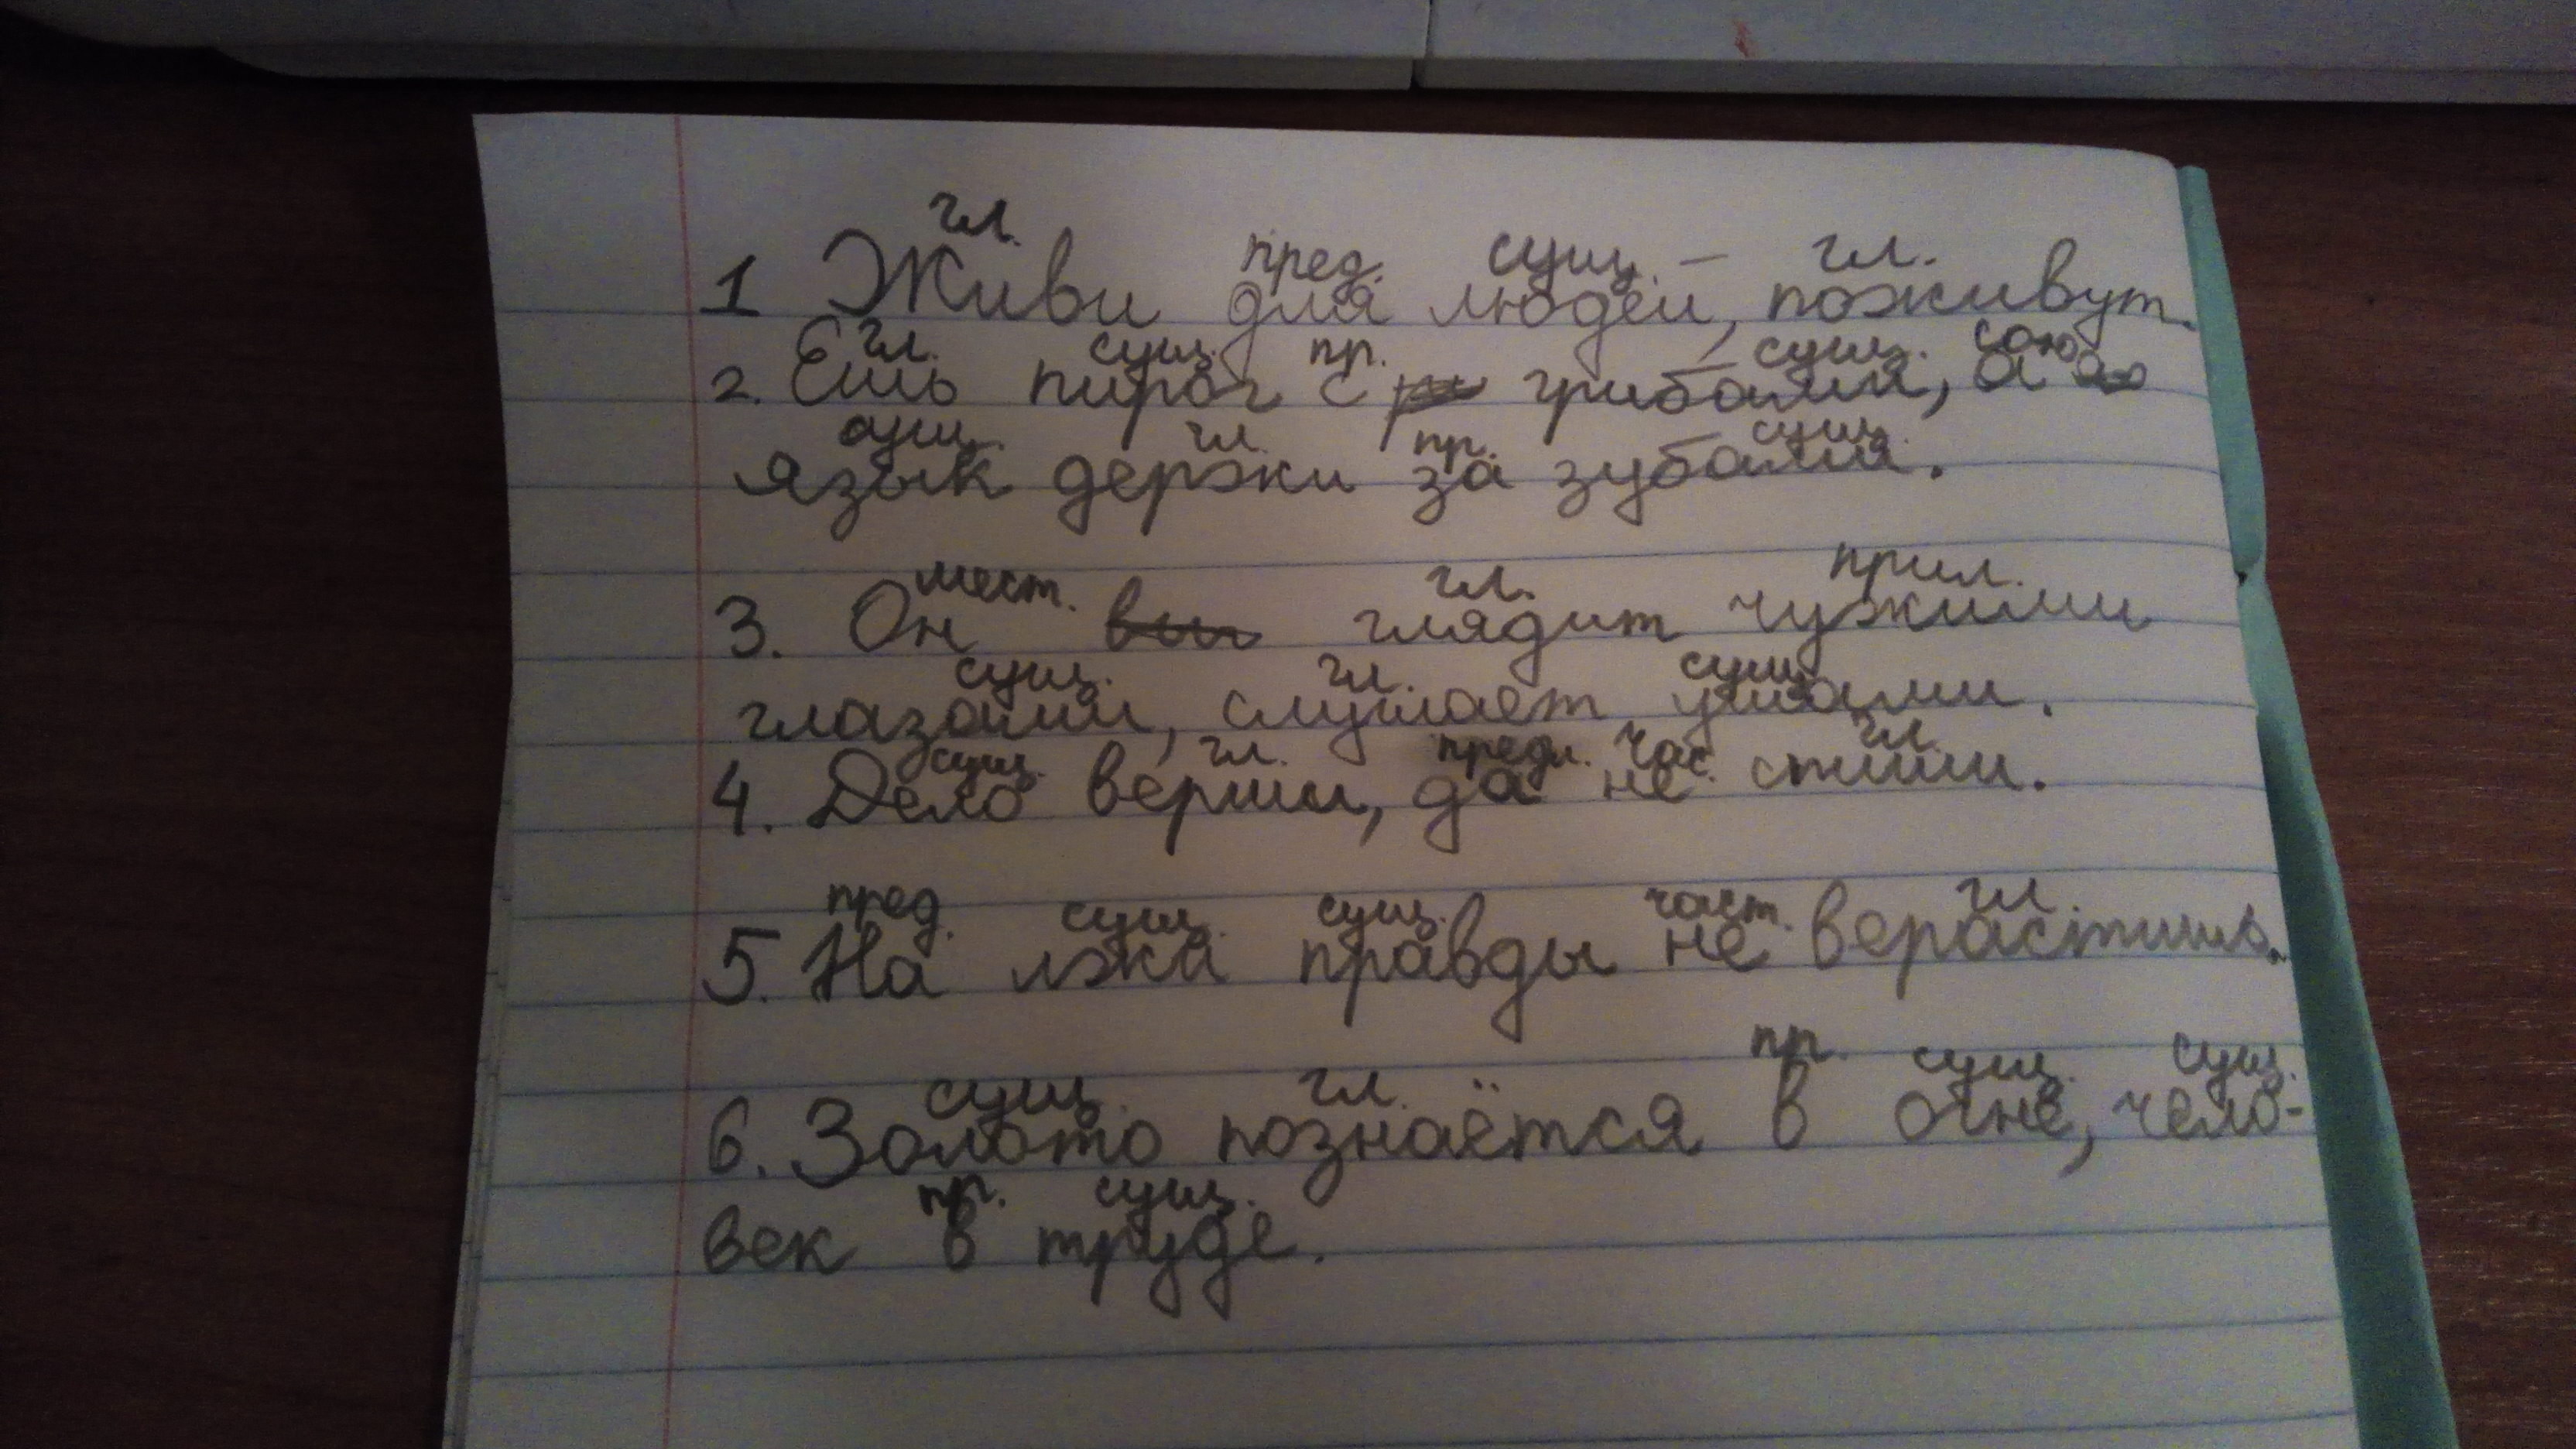 гл. пред. сущ. гл.
1 Живи для людей, поживут.
гл. сущ. пр. сущ. союз
2. Ешь пирог с грибами, а
сущ. гл. пр. сущ.
язык держи за зубами.
мест. гл. прил.
3. Он глядит чужими
сущ. гл. сущ.
глазами, слушает ушами.
сущ. гл. предл. час. гл.
4. Дело верши, да не спиши.
пред. сущ. сущ. част. гл.
5. На лжи правды не верастишь.
сущ. гл. пр. сущ. сущ.
6. Золото познаётся в огне, чело-
пр. сущ.
век в труде.